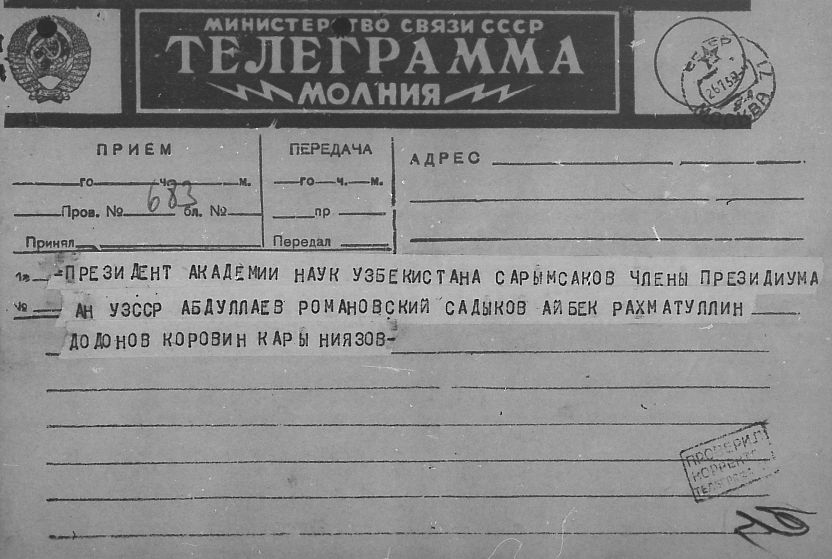 МИНИСТЕРСТВО СВЯЗИ СССР
ТЕЛЕГРАММА
МОЛНИЯ
МОСКВА
ПРИЕМ
го ч. м.
Пров. № 683 бл. №
Принял
ПЕРЕДАЧА
го ч. м.
пр
Передал
АДРЕС
-ПРЕЗИДЕНТ АКАДЕМИИ НАУК УЗБЕКИСТАНА САРЫМСАКОВ ЧЛЕНЫ ПРЕЗИДИУМА
№ АН УЗССР АБДУЛЛАЕВ РОМАНОВСКИЙ САДЫКОВ АЙБЕК РАХМАТУЛЛИН
ДОДОНОВ КОРОВИН КАРЫ НИЯЗОВ-
ПРОВЕРИЛ